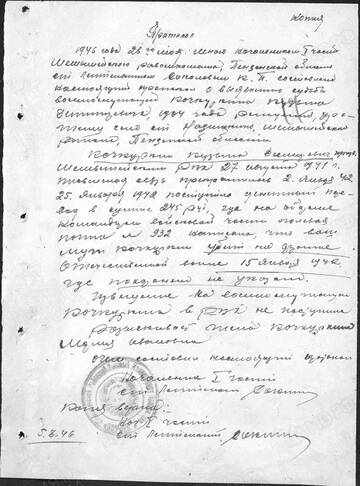 Копия
Протокол
1946 года 28го мая. мною начальником I части
Шемышейского райвоенкомата, Пензенской области
ст. лейтенантом К. П. составлен
настоящий протокол о выяснению судьбы
военнослужащего Кочкуркина Кузьма
1904 года
села ст. Назимкино, Шемышейского
района, Пензенской области.
Кочкуркин Кузьма призван
Шемышейским РВК 27 августа 1941 г.
связь прекратилась 2. Января 42г.
25. Января 1942 поступил денежный пере-
вод в сумме 245 руб, где на обороте
командиром войсковой части полевая
почта № 932 написано, что ваш
муж Кочкуркин убит на фронте
Отечественной войне 15 Января 1942
где похоронен не указал.
Извещение на военнослужащего
Кочкуркина в РВК не поступило
жена Кочкуркина
Мария Ивановна
О чем составлен настоящий протокол
Начальник I части
ст. лейтенант
Копия верна:
Нач. I части
5.6.46 ст. лейтенант